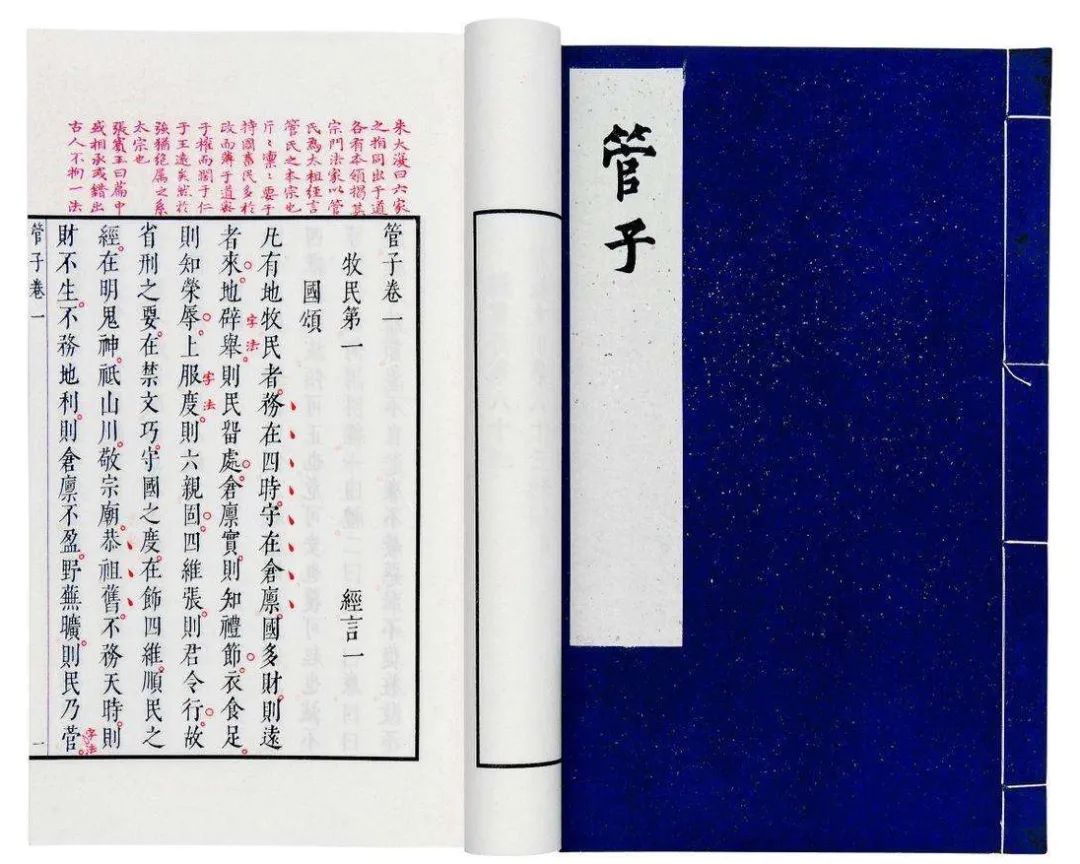 管子
朱大復曰六家
之指同出于道
各有本領揭其
宗門法家以管
氏為大祖經言
管氏之本宗也
斤〻凜〻要于
持國畜民多於
政而薄于道要
于權而闊于仁
于王遠矣然於
強猶絕属之系
太宗也
張賓王曰篇中
或相承或錯出
古人不拘一法
管子卷一
牧民第一 經言一
國頌
凡有地牧民者務在四時守在倉廩國多財則遠
者來地辟舉則民畱處倉廩實則知禮節衣食足
則知榮辱上服度則六親固四維張則君令行故
省刑之要在禁文巧守國之度在飾四維順民之
經在明鬼神祗山川敬宗廟恭祖舊不務天時則
財不生不務地利則倉廩不盈野蕪曠則民乃菅
字法
字法
字法
管子卷一
一